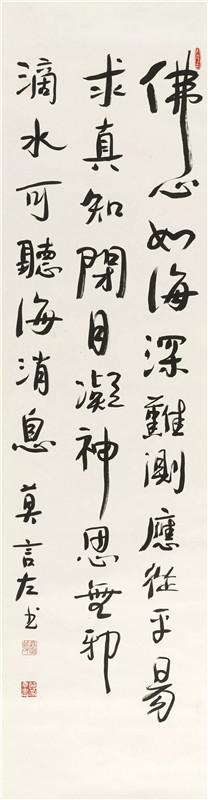 佛心如海深難測應從平易
求真知閉目凝神思無邪
滴水可聽海消息
莫言左书